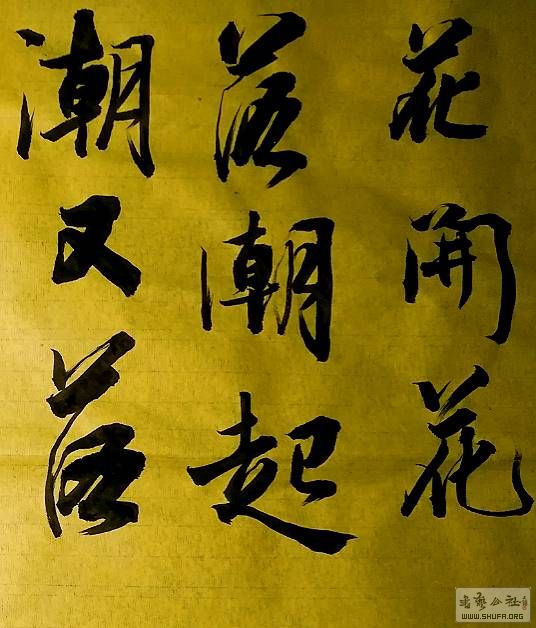 花開花
落潮起
潮又落
書藝公社
WWW.SHUFA.ORG